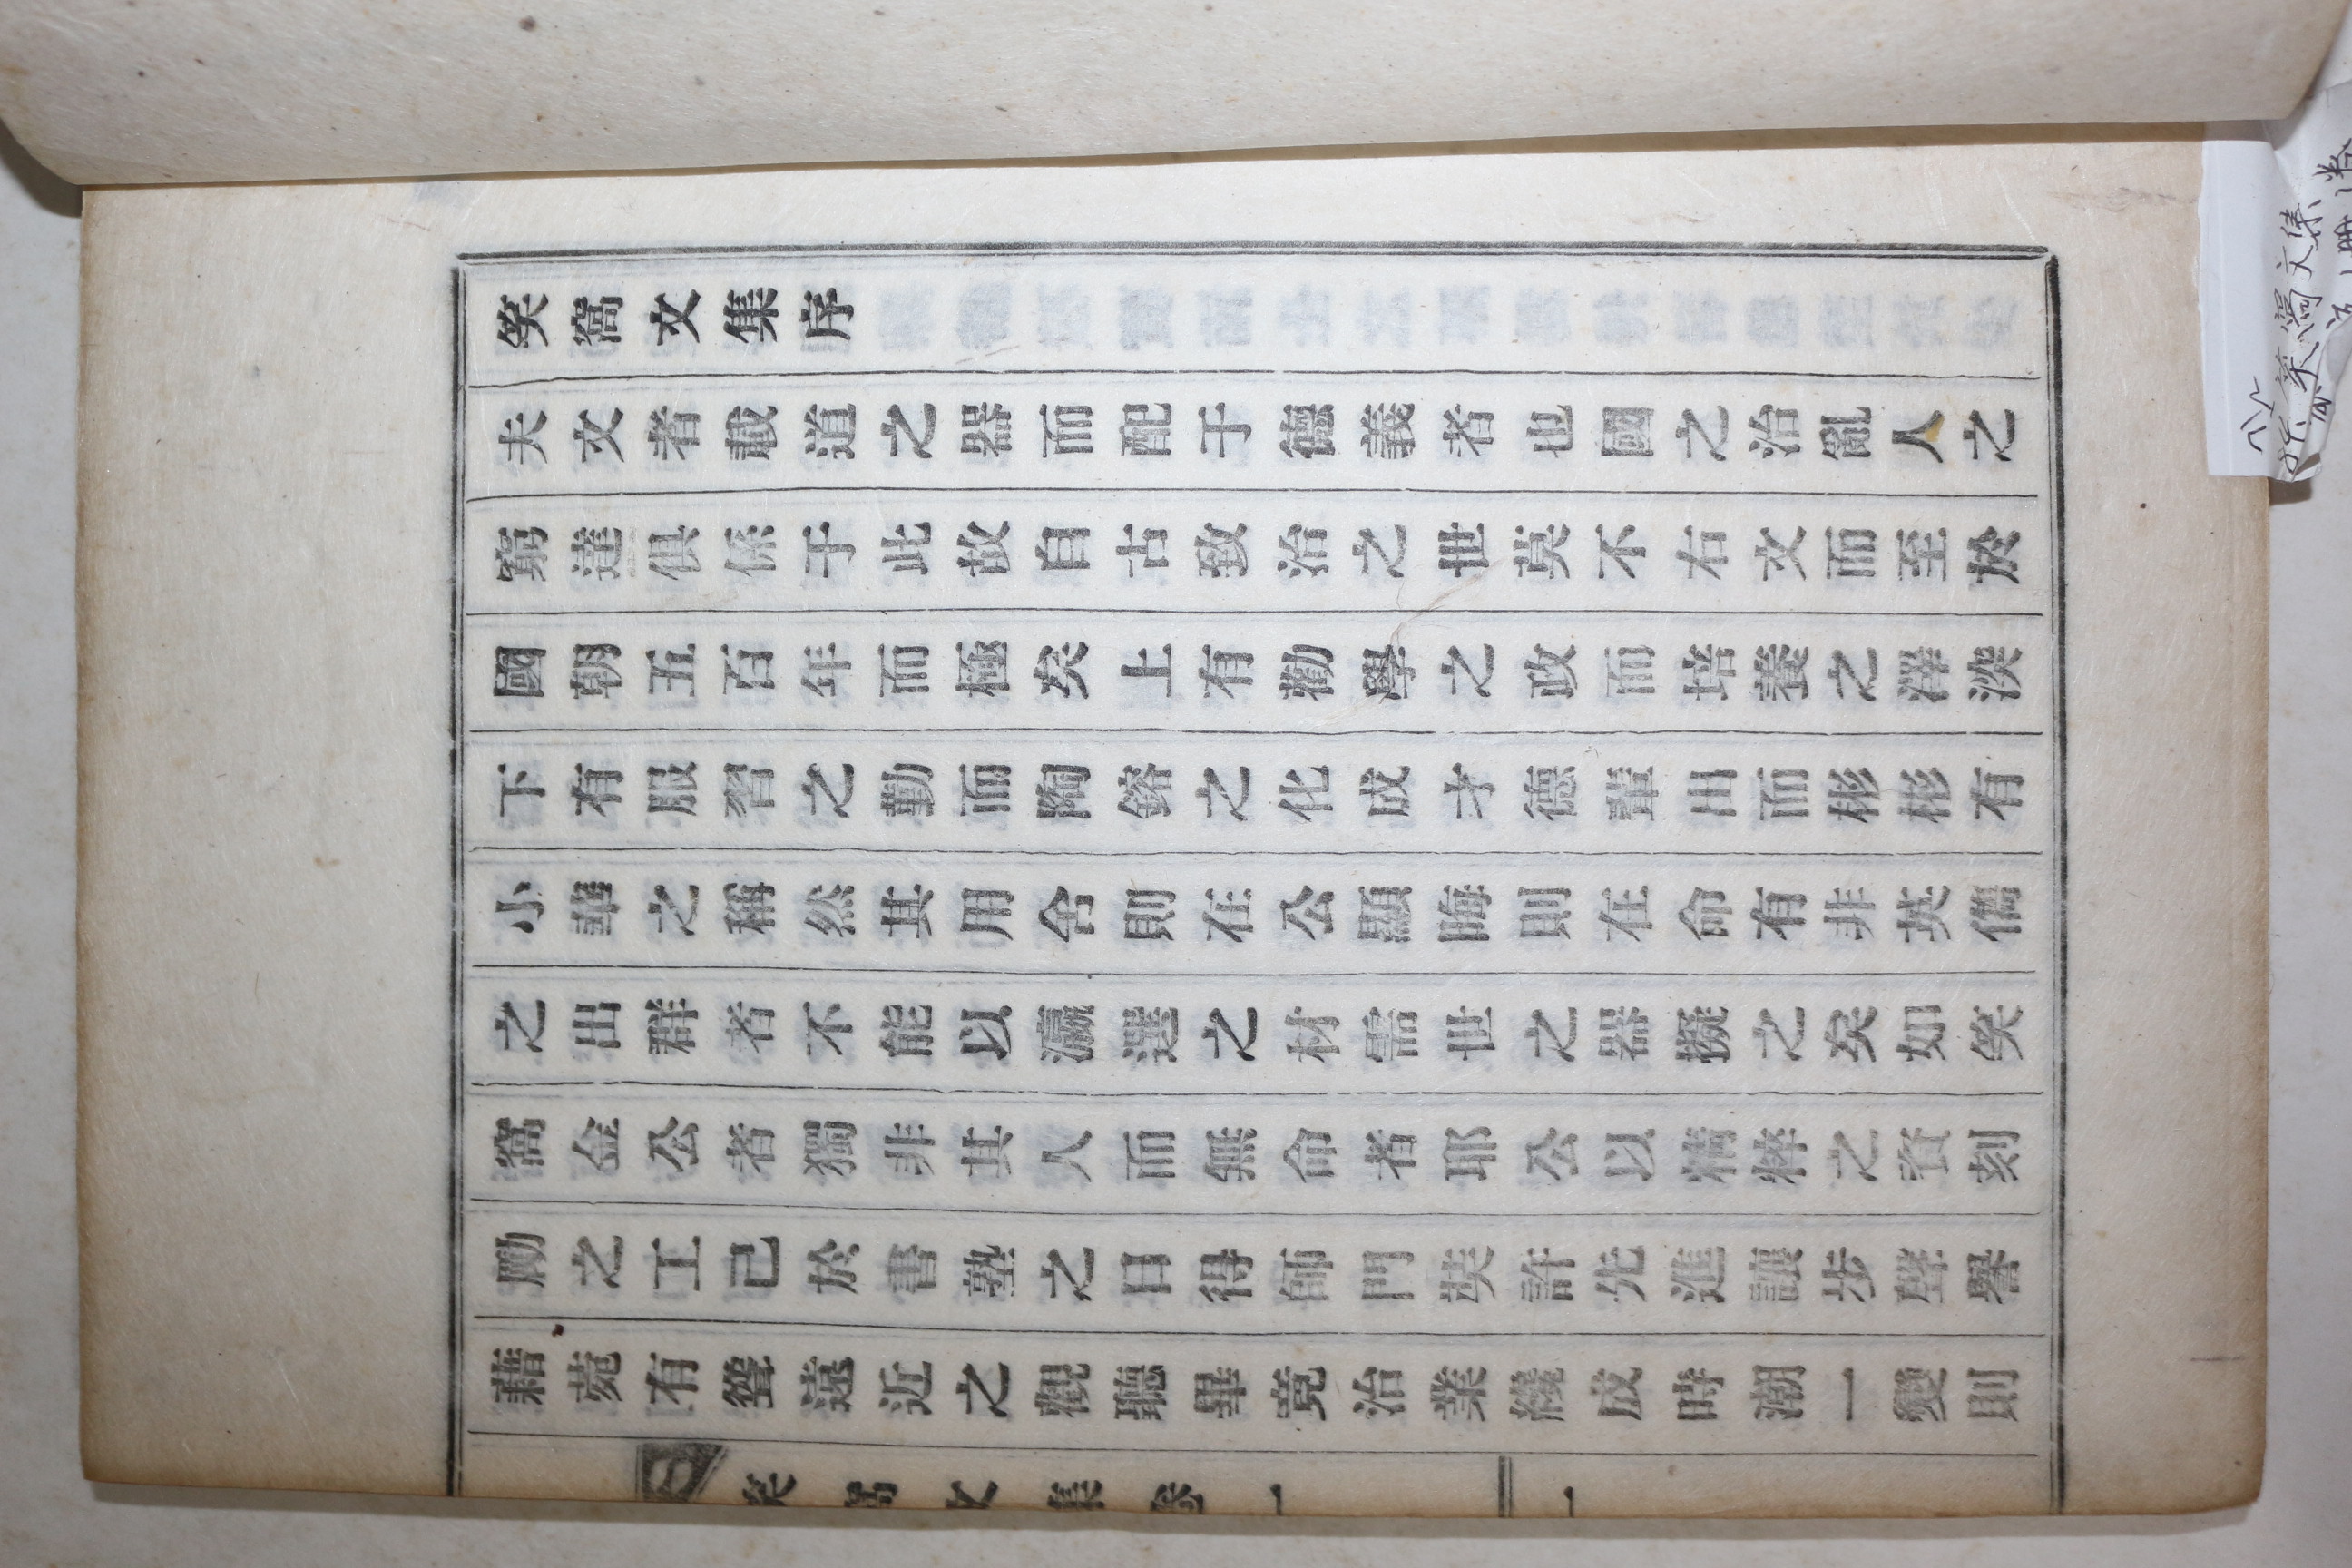 笑窩文集序
夫文者載道之器而配于德義者也國之治亂人之
窮達俱係于此故自古致治之世莫不右文而至於
國朝五百年而極矣上有勸學之政而培養之澤浹
下有服習之勤而陶鎔之化成才德輩出而彬彬有
小華之稱然其用舍則在公顯晦則在命有非英儁
之出群者不能以瀛選之材需世之器擬之矣如笑
窩金公者獨非其人而無命者耶公以精粹之資刻
勵之工已於書塾之日得師門奘許先進讓步聲譽
藉菀有聳遠近之觀聽畢竟治業纔成時潮一變則
笑窩文集卷一
一
笑窩文集